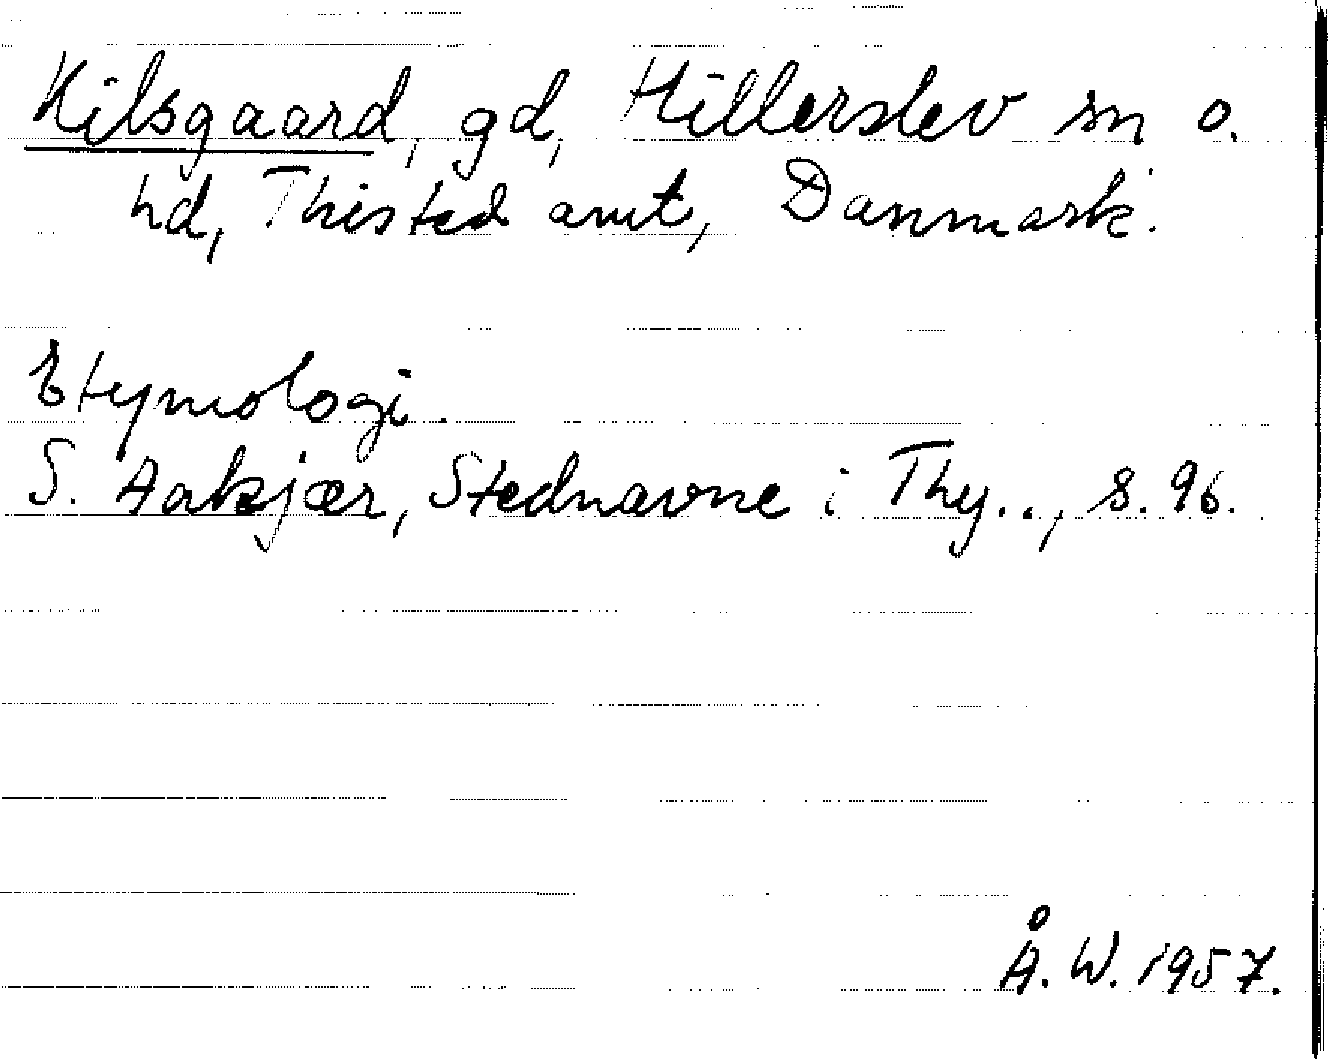 Kilsgaard, gd, Hillerslev sn o.
hd, Thisted amt, Danmark.
Etymologi.
S. Aakjær, Stednavne i Thy.., s. 96.
Å. W. 1957.